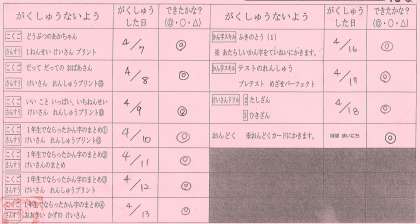 がくしゅうないよう
がくしゅうした日
できたかな?(◎・○・△)
こくご どうぶつのあかちゃん
さんすう 1ねんせい けいさん プリント
4/7 ◎
こくご だって だっての おばあさん
さんすう けいさん れんしゅうプリント
4/8 ◎
こくご いい こと いっぱい、いちねんせい
さんすう けいさん れんしゅうプリント
4/9 ◎
こくご 1年生でならったかん字のまとめ①
さんすう けいさん れんしゅうプリント
4/10 ◎
こくご 1年生でならったかん字のまとめ②
さんすう けいさんのまとめ
4/11 ◎
こくご 1年生でならったかん字のまとめ③
さんすう けいさん れんしゅうプリント
4/12 ◎
1年生でならったかん字のまとめ④
おおきい かずの けいさん
4/13 ◎
がくしゅうないよう
がくしゅうした日
できたかな?(◎・○・△)
かん字スキル ふきのとう(1)
※ あたらしいかん字をていねいにかきます。
4/16 ◎
かん字スキル テストのれんしゅう
プレテスト めざせパーフェクト
4/19 ◎
けいさんドリル 2 たしざん
3 ひきざん
4/18 ◎
おんどく ※おんどくカードにかきます。
ほぼ まいにち ◎